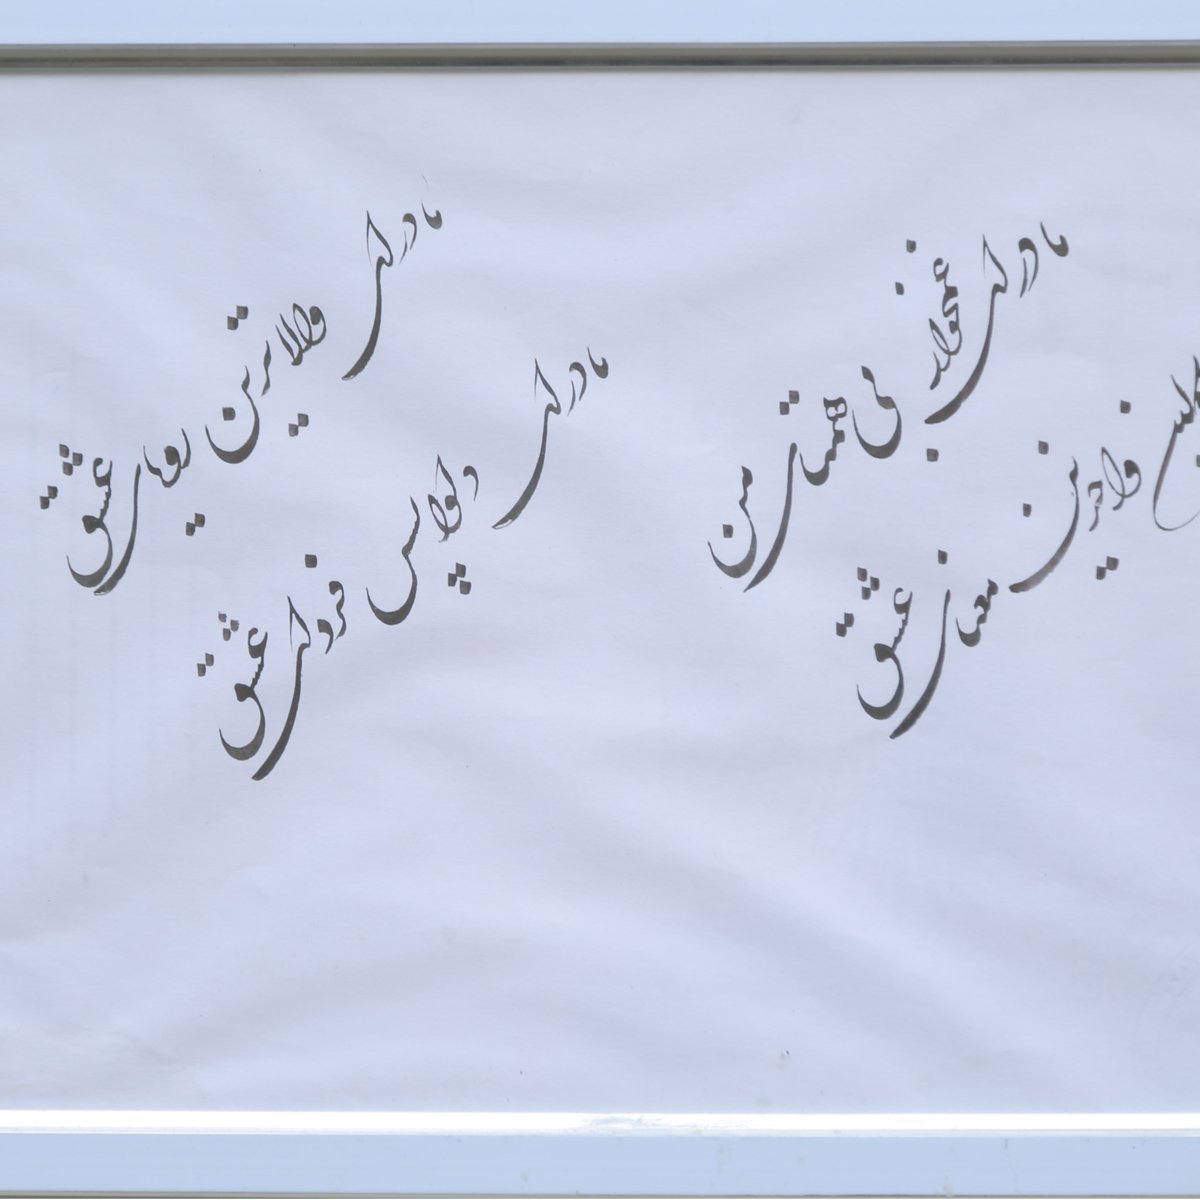 مادر ای غمخوار بی همتای من
واجدترین معنای عشق
مادر ای والاترین رویای عشق
مادر ای دلواپس فردای عشق